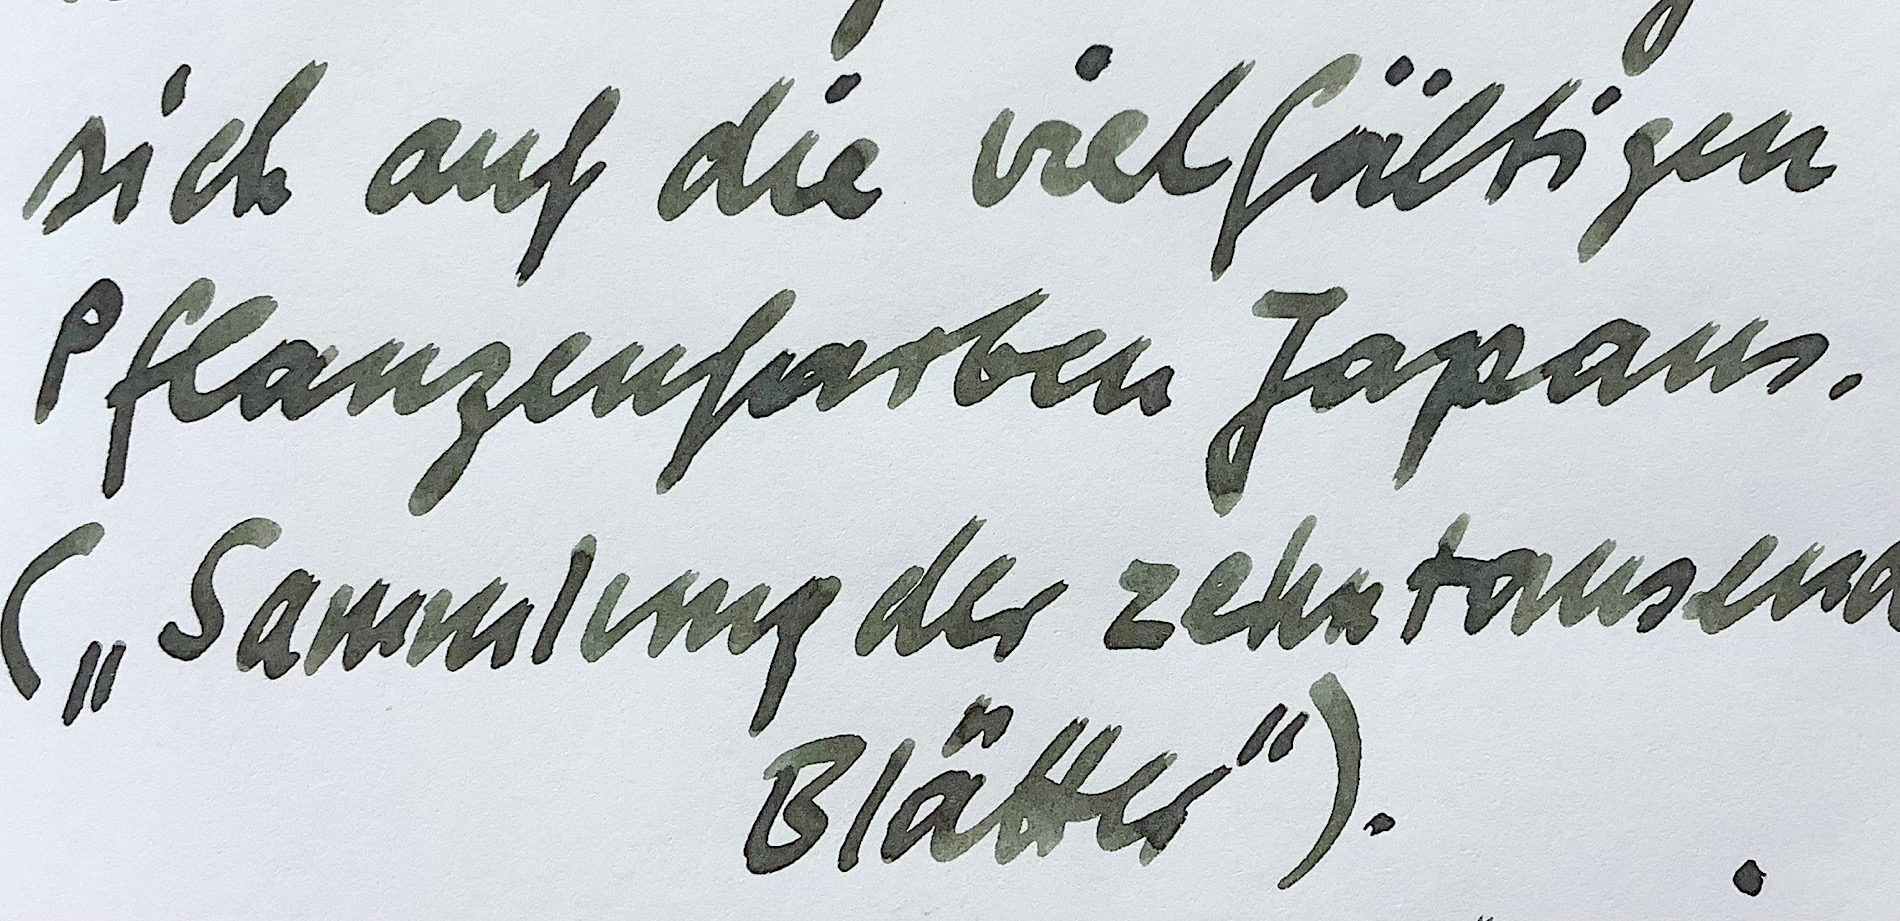 sich auf die vielfältigen
Pflanzenfarben Japans.
(„Sammlung der zehntausend
Blätter").